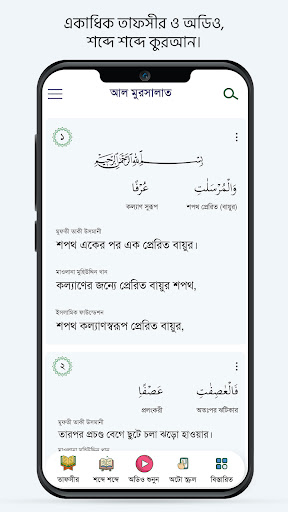 একাধিক তাফসীর ও অডিও,
শব্দে শব্দে কুরআন।
আল মুরসালাত
১
بِسْمِ اللّٰهِ الرَّحْمٰنِ الرَّحِيْمِ
وَالْمُرْسَلٰتِ عُرْفًا
শপথ প্রেরিত (বায়ুর) কল্যাণ স্বরূপ
মুফতী তাকী উসমানী
শপথ একের পর এক প্রেরিত বায়ুর।
মাওলানা মুহিউদ্দিন খান
কল্যাণের জন্যে প্রেরিত বায়ুর শপথ,
ইসলামিক ফাউন্ডেশন
শপথ কল্যাণস্বরূপ প্রেরিত বায়ুর,
২
فَالْعٰصِفٰتِ عَصْفًا
অতঃপর ঝটিকার প্রলংকরী
মুফতী তাকী উসমানী
তারপর প্রচণ্ড বেগে ছুটে চলা ঝড়ো হাওয়ার।
মাওলানা মুহিউদ্দিন খান
তাফসীর শব্দে শব্দে অডিও শুনুন অটো স্ক্রল বিস্তারিত